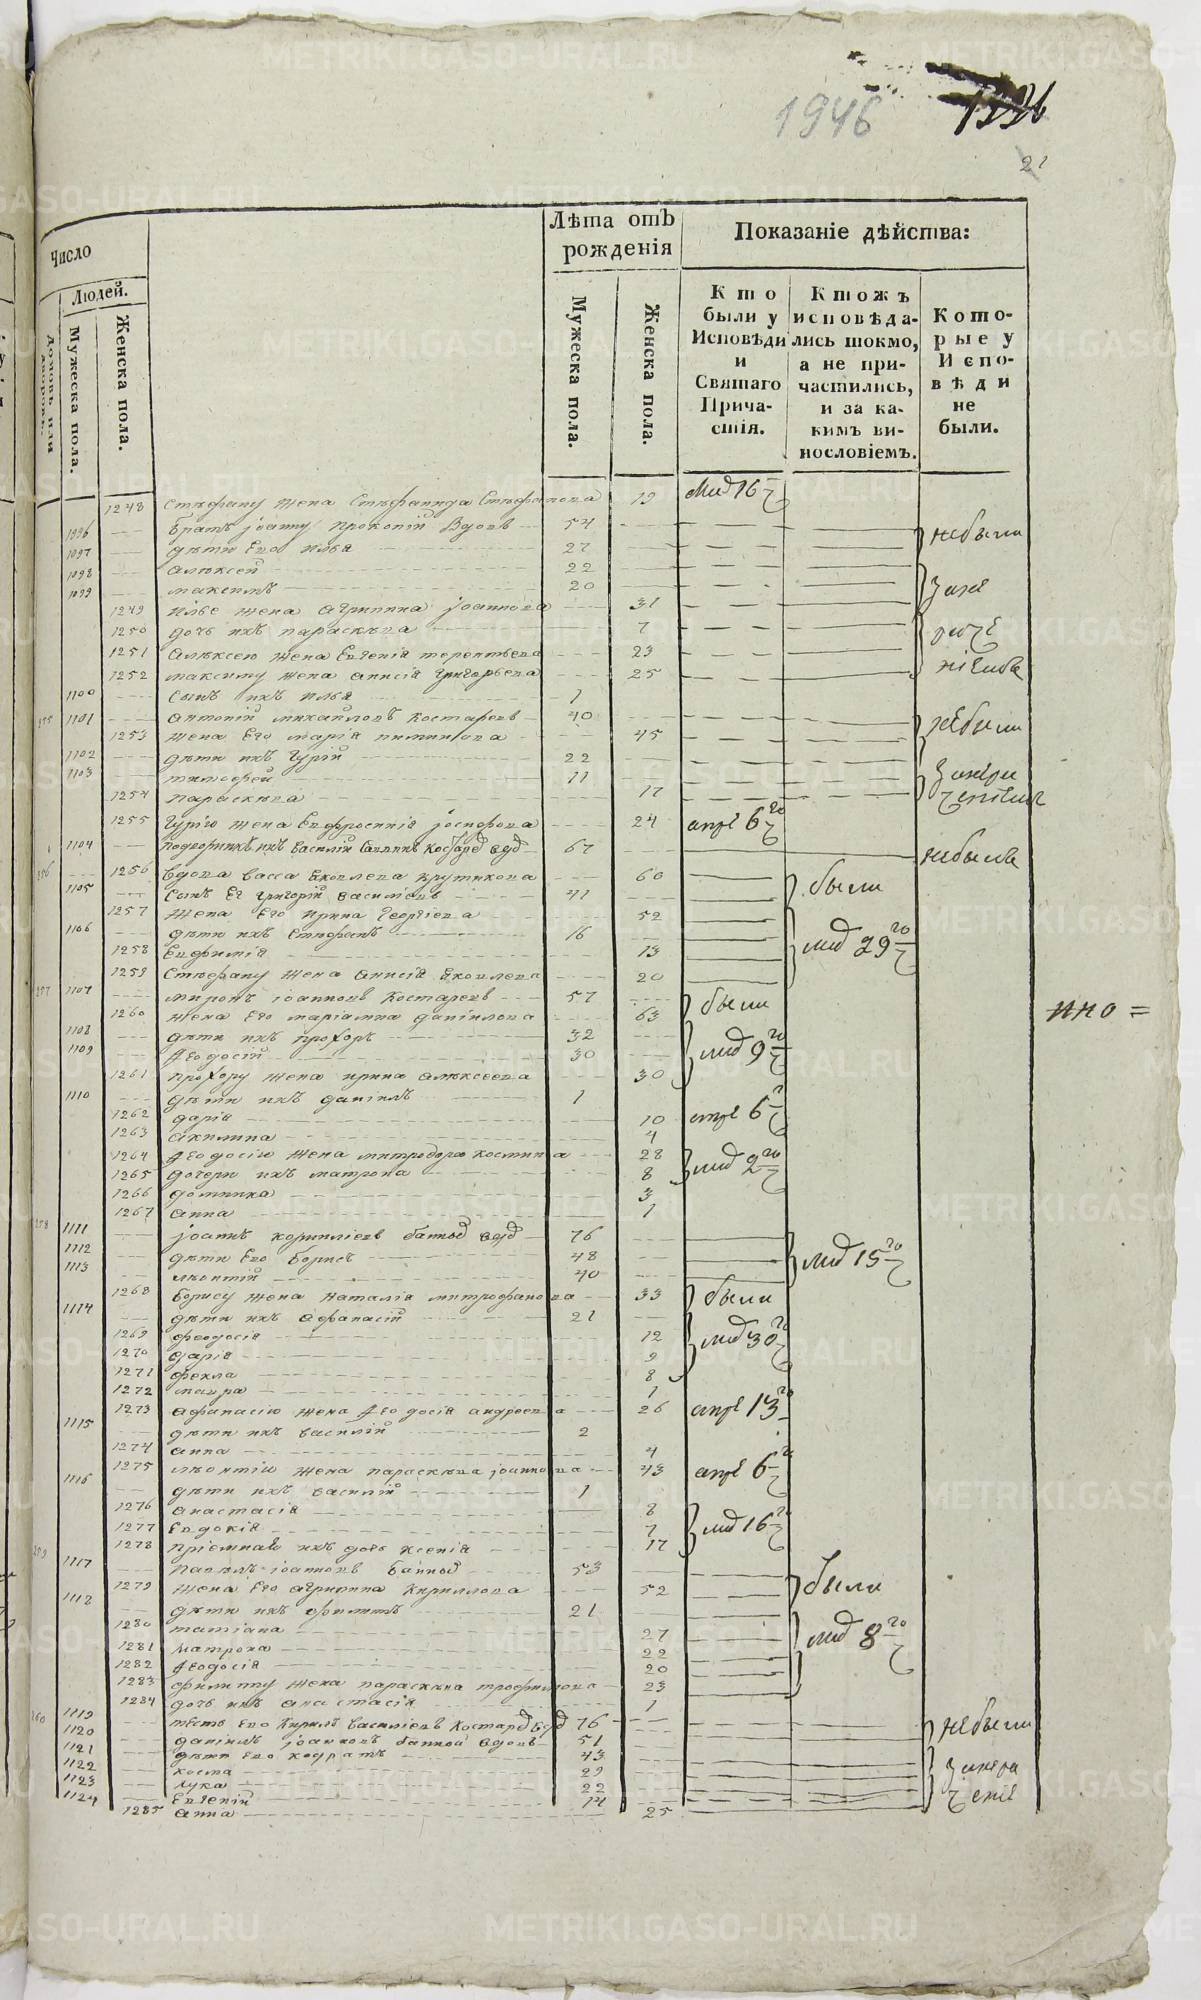 1946 1336
21
Число
Людей.
Домовъ или дворовъ.
Мужеска пола.
Женска пола.
Лѣта отъ рожденія
Мужеска пола.
Женска пола.
Показаніе дѣйства:
Кто были у Исповѣди и Святаго Причастія.
Ктожъ исповѣдались токмо, а не причастились, и за какимъ винословіемъ.
Которые у Исповѣди не были.
1248 Стефану жена Стефанида Стефанова 19 16
1096 братъ Іоанну Прокопій вдовъ 54 небыли
1097 дѣти его Илья 27
1098 Алексей 22
1099 Максимъ 20
1249 Илье жена Агрипина Іоаннова 31
1250 дочь ихъ Параскева 7
1251 Алексею жена Евгенія Терентьева 23
1252 Максиму жена Анисія Григорьева 25
1100 сынъ ихъ Илья 1
255 1101 Антоній Михайловъ Костаревъ 40 небыли
1253 жена его Марія Пиминова 45
1102 дѣти ихъ Гурій 22
1103 Тимофей 11
1254 Параскева 17
1255 Гурію жена Евфросинія Іосифова 24 апре 6го
1104 Василій 67 небылъ
256 1256 вдова Васса Яковлева Крутикова 60 были
1105 сынъ ея Григорій Василіевъ 41
1257 жена его Ирина Георгіева 52
1106 дѣти ихъ Стефанъ 16 29го
1258 Евфимія 13
1259 Стефану жена Анисія Яковлева 20
257 1107 Миронъ Іоанновъ Костаревъ 57 были
1260 жена его Маріамна Даніилова 63
1108 дѣти ихъ Прохоръ 32
1109 Феодосій 30 9го
1261 Прохору жена Ирина Алексеева 30
1110 дѣти ихъ Даніилъ 1
1262 Дарія 10 апре 6го
1263 Акилина 4
1264 Феодосію жена Митродора Костина 28
1265 дочери ихъ Матрона 8 2го
1266 Домника 3
1267 Анна 1
258 1111 Іоаннъ Корниліевъ 76
1112 дѣти его Борисъ 48 15го
1113 Леонтій 40
1268 Борису жена Наталія Митрофанова 33 были
1114 дѣти ихъ Афанасій 21
1269 Феодосія 12 30го
1270 Дарія 9
1271 Фекла 8
1272 Мавра 1
1273 Афанасію жена Феодосія Андреева 26 апре 13го
1115 дѣти ихъ Василій 2
1274 Анна 4
1275 Леонтію жена Параскева Іоаннова 43 апре 6го
1116 дѣти ихъ Василій 1
1276 Анастасія 8
1277 Евдокія 7 16го
1278 пріемная ихъ дочь Ксенія 17
259 1117 Павелъ Іоанновъ 53 были
1279 жена его Агрипина Кириллова 52
1118 дѣти ихъ Филиппъ 21
1280 Татіана 27 8го
1281 Матрона 22
1282 Феодосія 20
1283 Филиппу жена Параскева Трофимова 23
1284 дочь ихъ Анастасія 1
1119 тесть его Кирилъ Василіевъ 76 небыли
260 1120 Даніилъ Іоанновъ вдовъ 51
1121 дѣти его Кодратъ 43
1122 Косма 29
1123 Лука 22
1124 Евгеній 14
1285 Анна 25